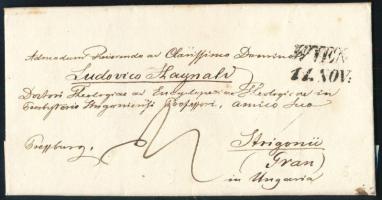 Admodum Reverendo ac Clarissimo Domino
Ludovico Haynald
WIEN
11. NOV.
Doctori Theologiae ac Theologiae in
Presbyterio Professori, amico suo
Strigonii
Pressburg.
(Gran)
in Ungaria